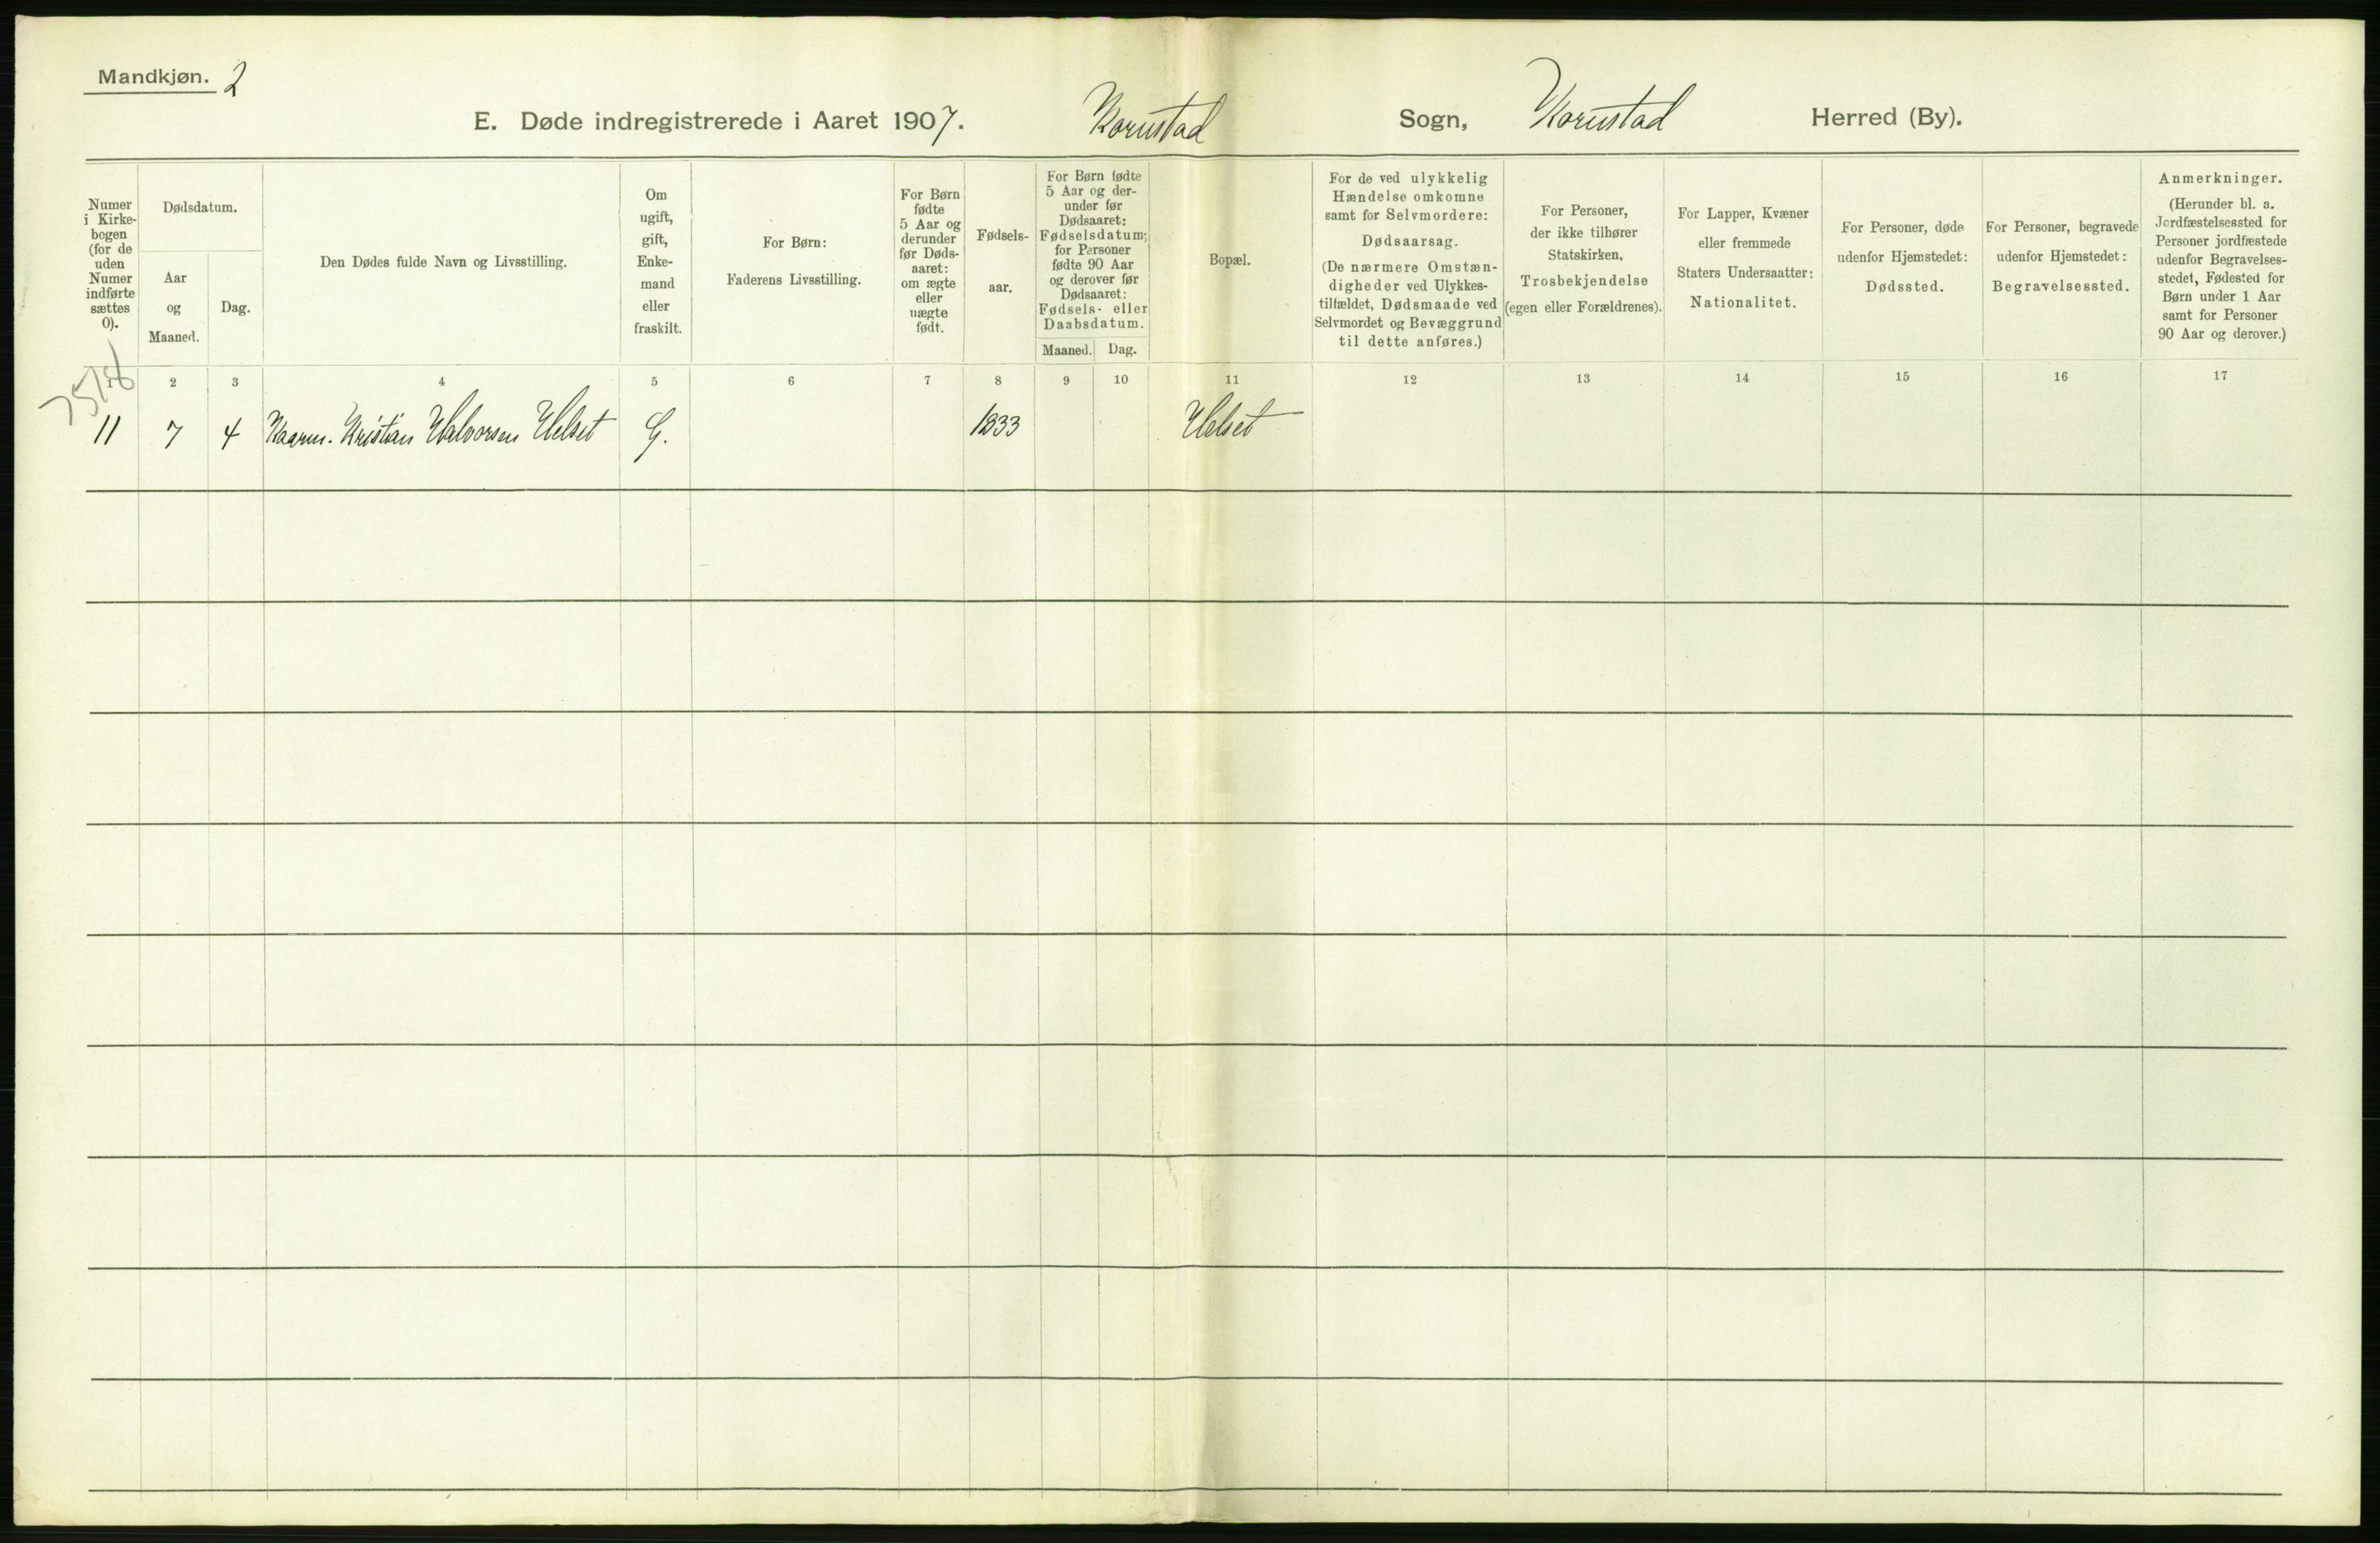 Mandkjøn. 2
E. Døde indregistrerede i Aaret 1907. Kornstad Sogn, Kornstad Herred (By).
Numer
i Kirke-
bogen
(for de
uden
Numer
indførte
sættes
0).
Dødsdatum.
Aar
og
Maaned.
Dag.
Den Dødes fulde Navn og Livsstilling.
Om
ugift,
gift,
Enke-
mand
eller
fraskilt.
For Børn:
Faderens Livsstilling.
For Børn
fødte
5 Aar og
derunder
før Døds-
aaret:
om ægte
eller
uægte
født.
Fødsels-
aar.
For Børn fødte
5 Aar og der-
under før
Dødsaaret:
Fødselsdatum;
for Personer
fødte 90 Aar
og derover før
Dødsaaret:
Fødsels- eller
Daabsdatum.
Maaned. Dag.
Bopæl.
For de ved ulykkelig
Hændelse omkomne
samt for Selvmordere:
Dødsaarsag.
(De nærmere Omstæn-
digheder ved Ulykkes-
tilfældet, Dødsmaade ved
Selvmordet og Bevæggrund
til dette anføres.)
For Personer,
der ikke tilhører
Statskirken,
Trosbekjendelse
(egen eller Forældrenes).
For Lapper, Kvæner
eller fremmede
Staters Undersaatter:
Nationalitet.
For Personer, døde
udenfor Hjemstedet:
Dødssted.
For Personer, begravede
udenfor Hjemstedet:
Begravelsessted.
Anmerkninger.
(Herunder bl. a.
Jordfæstelsessted for
Personer jordfæstede
udenfor Begravelses-
stedet, Fødested for
Børn under 1 Aar
samt for Personer
90 Aar og derover.)
2 3 4 5 6 7 8 9 10 11 12 13 14 15 16 17
11 7 4 Kaarm. Kristian Halvorsen Helset G. 1833 Helset